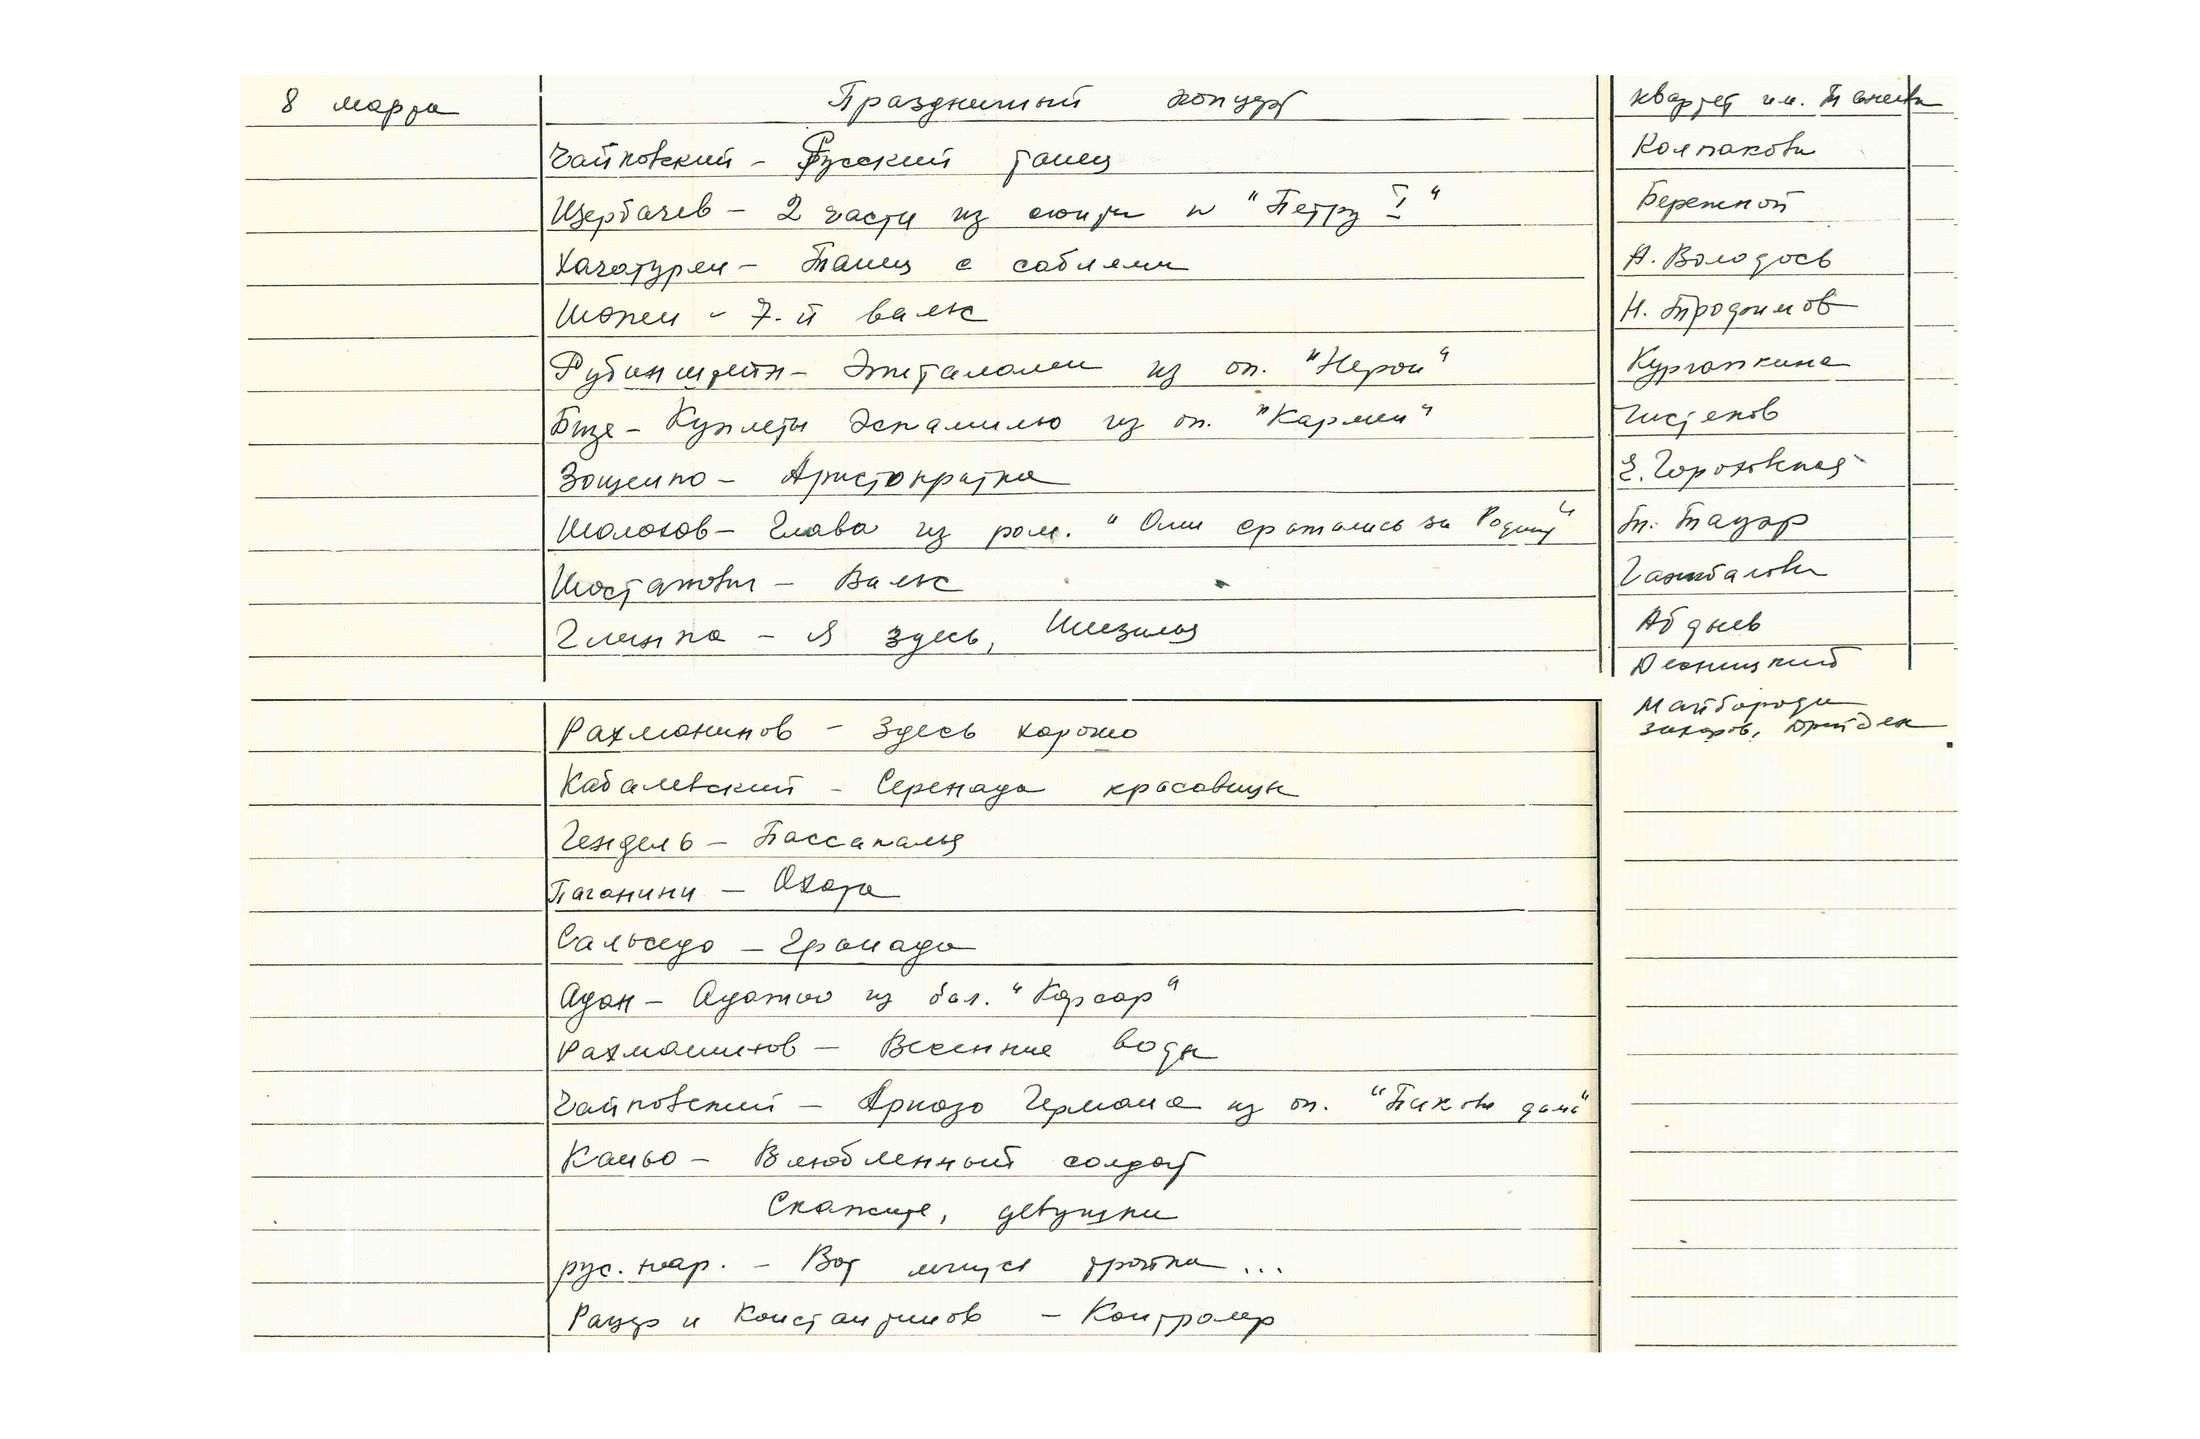 8 марта
Праздничный концерт
Чайковский - Русский танец
Щербачев - 2 части из сюиты к "Петру I"
Хачатурян - Танец с саблями
Шопен - 7-й вальс
Рубинштейн - Эпиталама из оп. "Нерон"
Бизе - Куплеты Эскамильо из оп. "Кармен"
Зощенко - Аристократка
Шолохов - Глава из ром. "Они сражались за Родину"
Шостакович - Вальс
Глинка - Я здесь, Инезилья
Рахманинов - Здесь хорошо
Кабалевский - Серенада красавицы
Гендель - Пассакалья
Паганини - Охота
Сальседо - Гранада
Адан - Адажио из бал. "Корсар"
Рахманинов - Весенние воды
Чайковский - Ариозо Германа из оп. "Пиковая дама"
Каньо - Влюбленный солдат
Скажите, девушки
рус. нар. - Вот мчится тройка...
Раузр и Константинов - Контролер
квартет им. Танеева
Колпакова
Бережной
А. Володось
Н. Трофимов
Кургапкина
Чистяков
Е. Гороховская
Т. Тауэр
Гажбалова
Абдыев
Десницкий
Майборода
Захаров, Дрейден